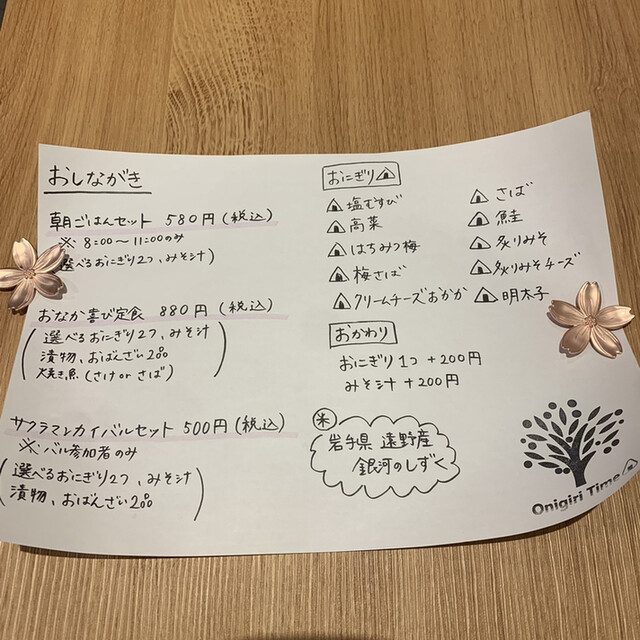 おしながき
朝ごはんセット 580円(税込)
※ 8:00〜11:00のみ
選べるおにぎり2つ、みそ汁)
おなか喜び定食 880円(税込)
(選べるおにぎり2つ、みそ汁
漬物、おばんざい2品
焼き魚(さけ or さば))
サクラマンカイバルセット 500円(税込)
※バル参加者のみ
(選べるおにぎり2つ、みそ汁
漬物、おばんざい2品)
おにぎり
塩むすび
高菜
はちみつ梅
梅さば
クリームチーズおかか
さば
鮭
炙りみそ
炙りみそチーズ
明太子
おかわり
おにぎり1つ +200円
みそ汁 +200円
米
岩手県 遠野産
銀河のしずく
Onigiri Time